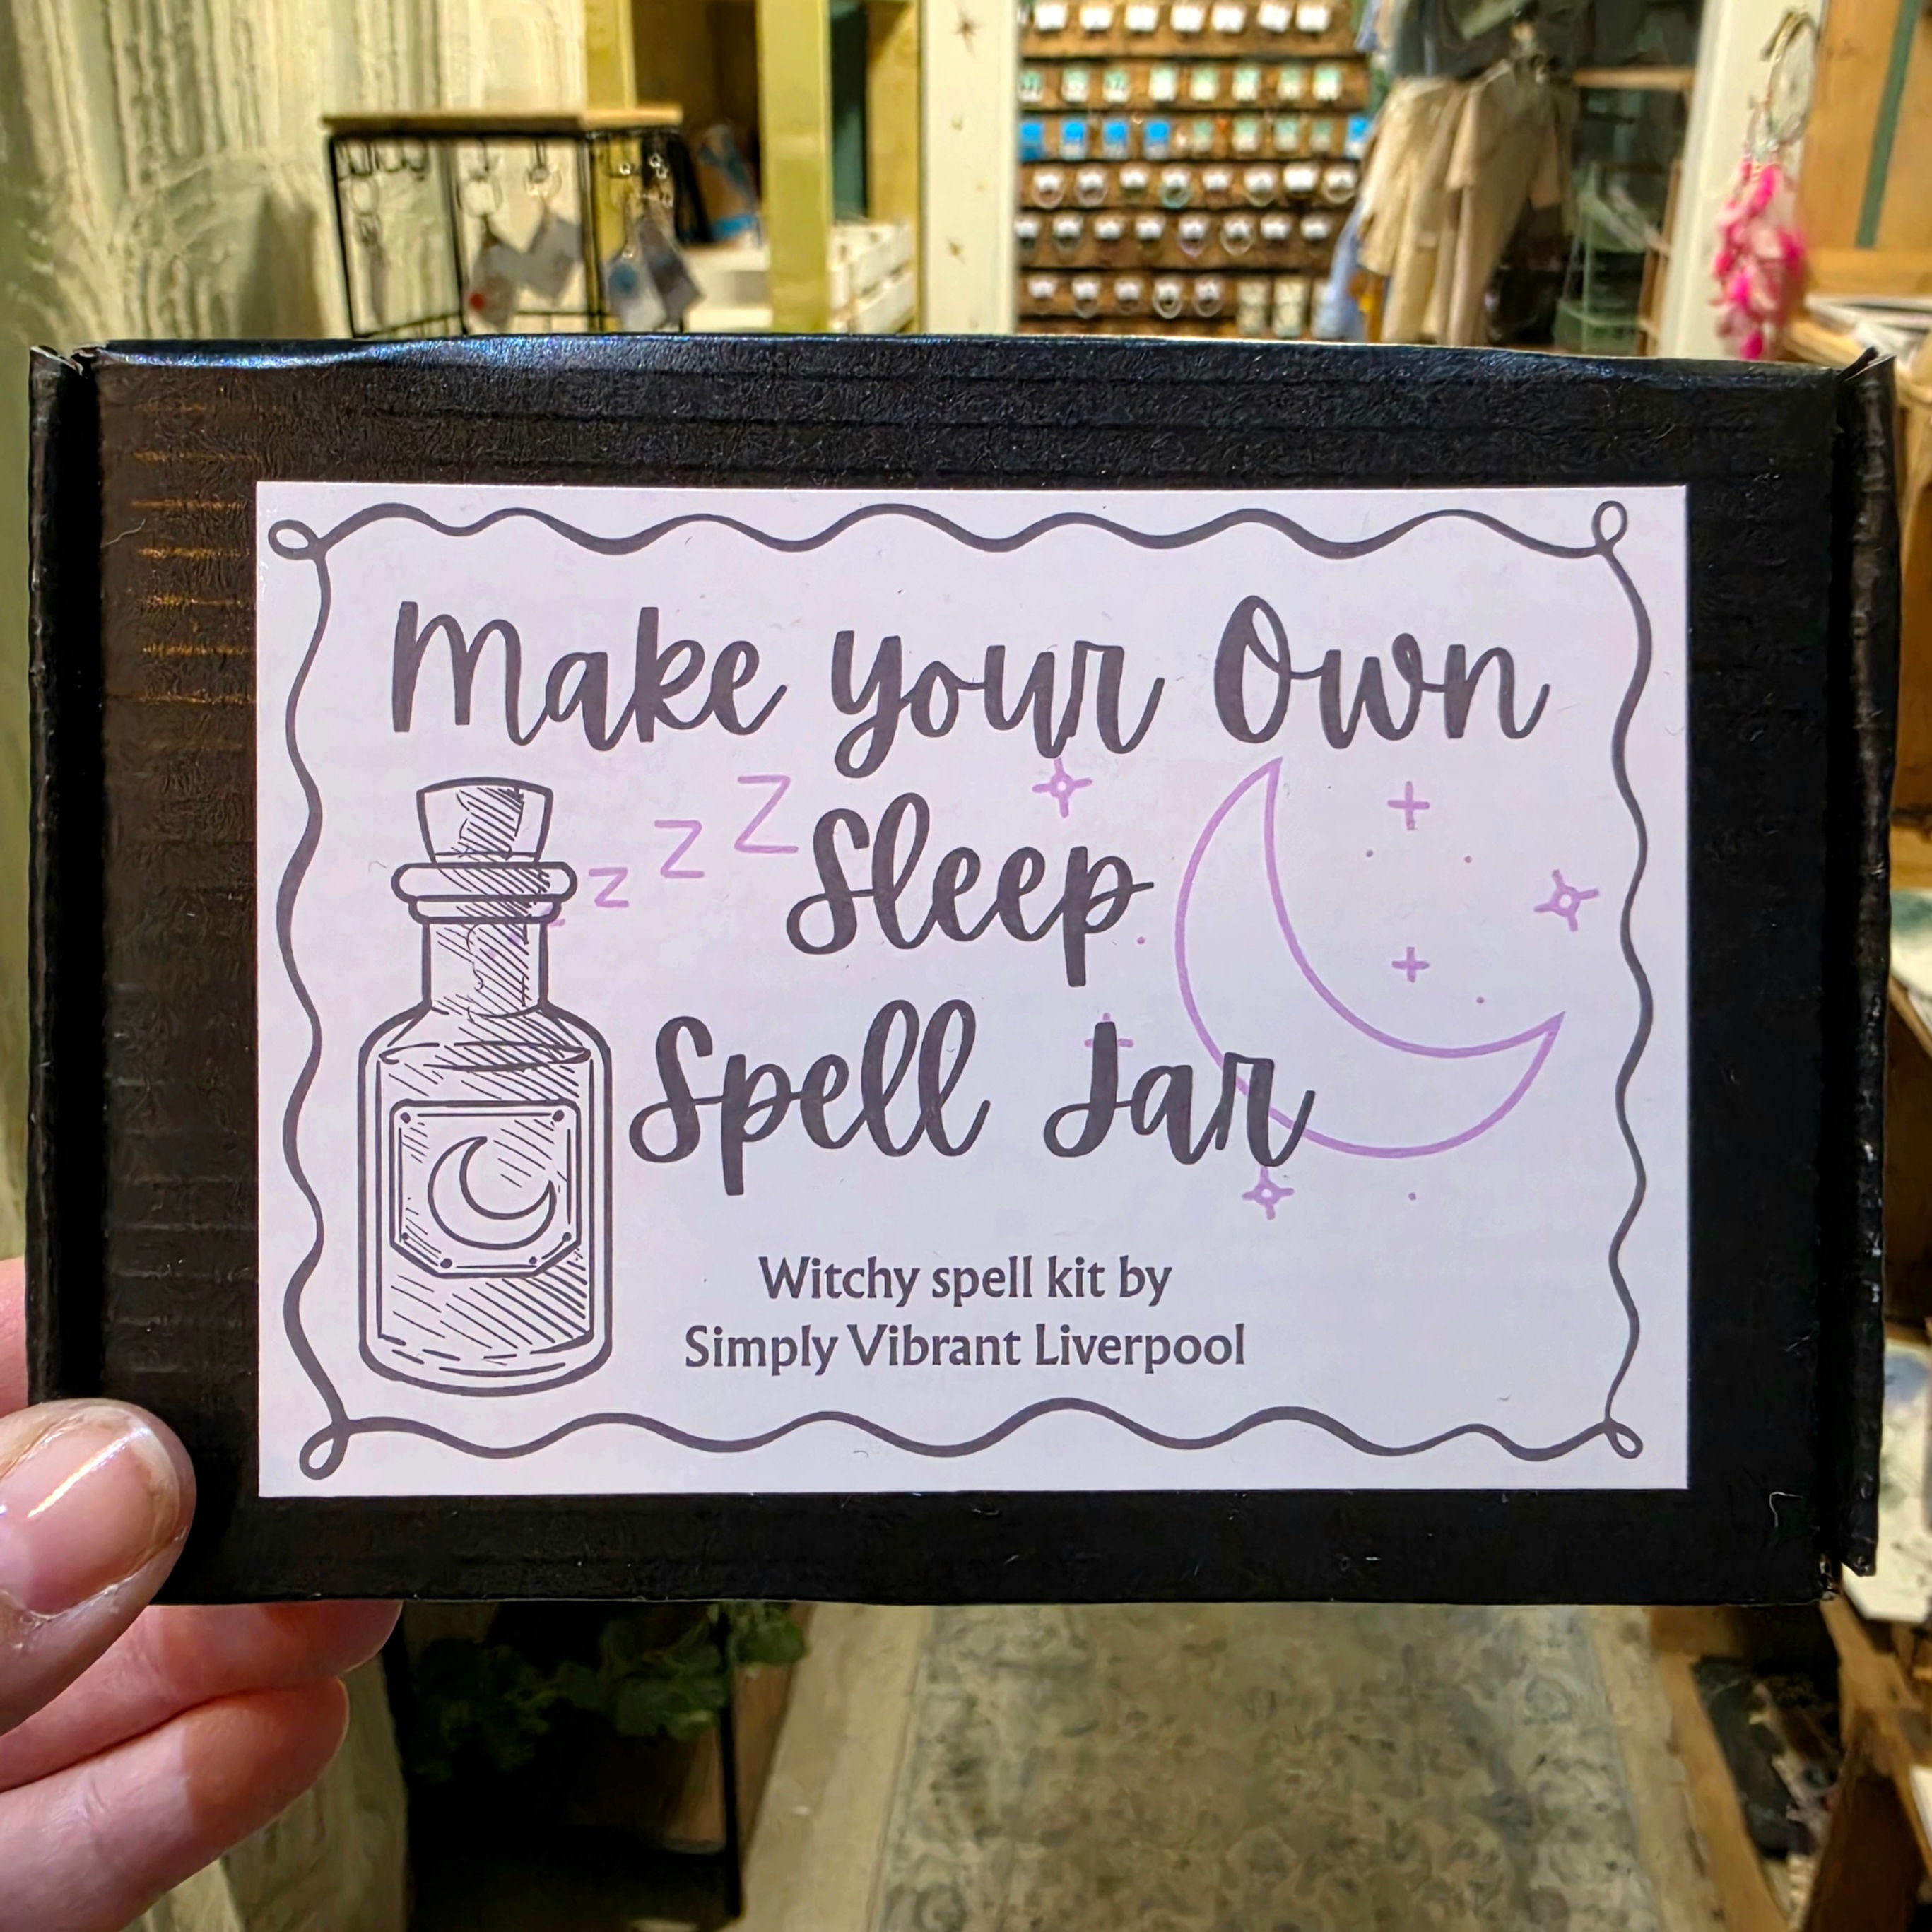 Make Your Own
z z Z
Sleep
Spell Jar
Witchy spell kit by
Simply Vibrant Liverpool